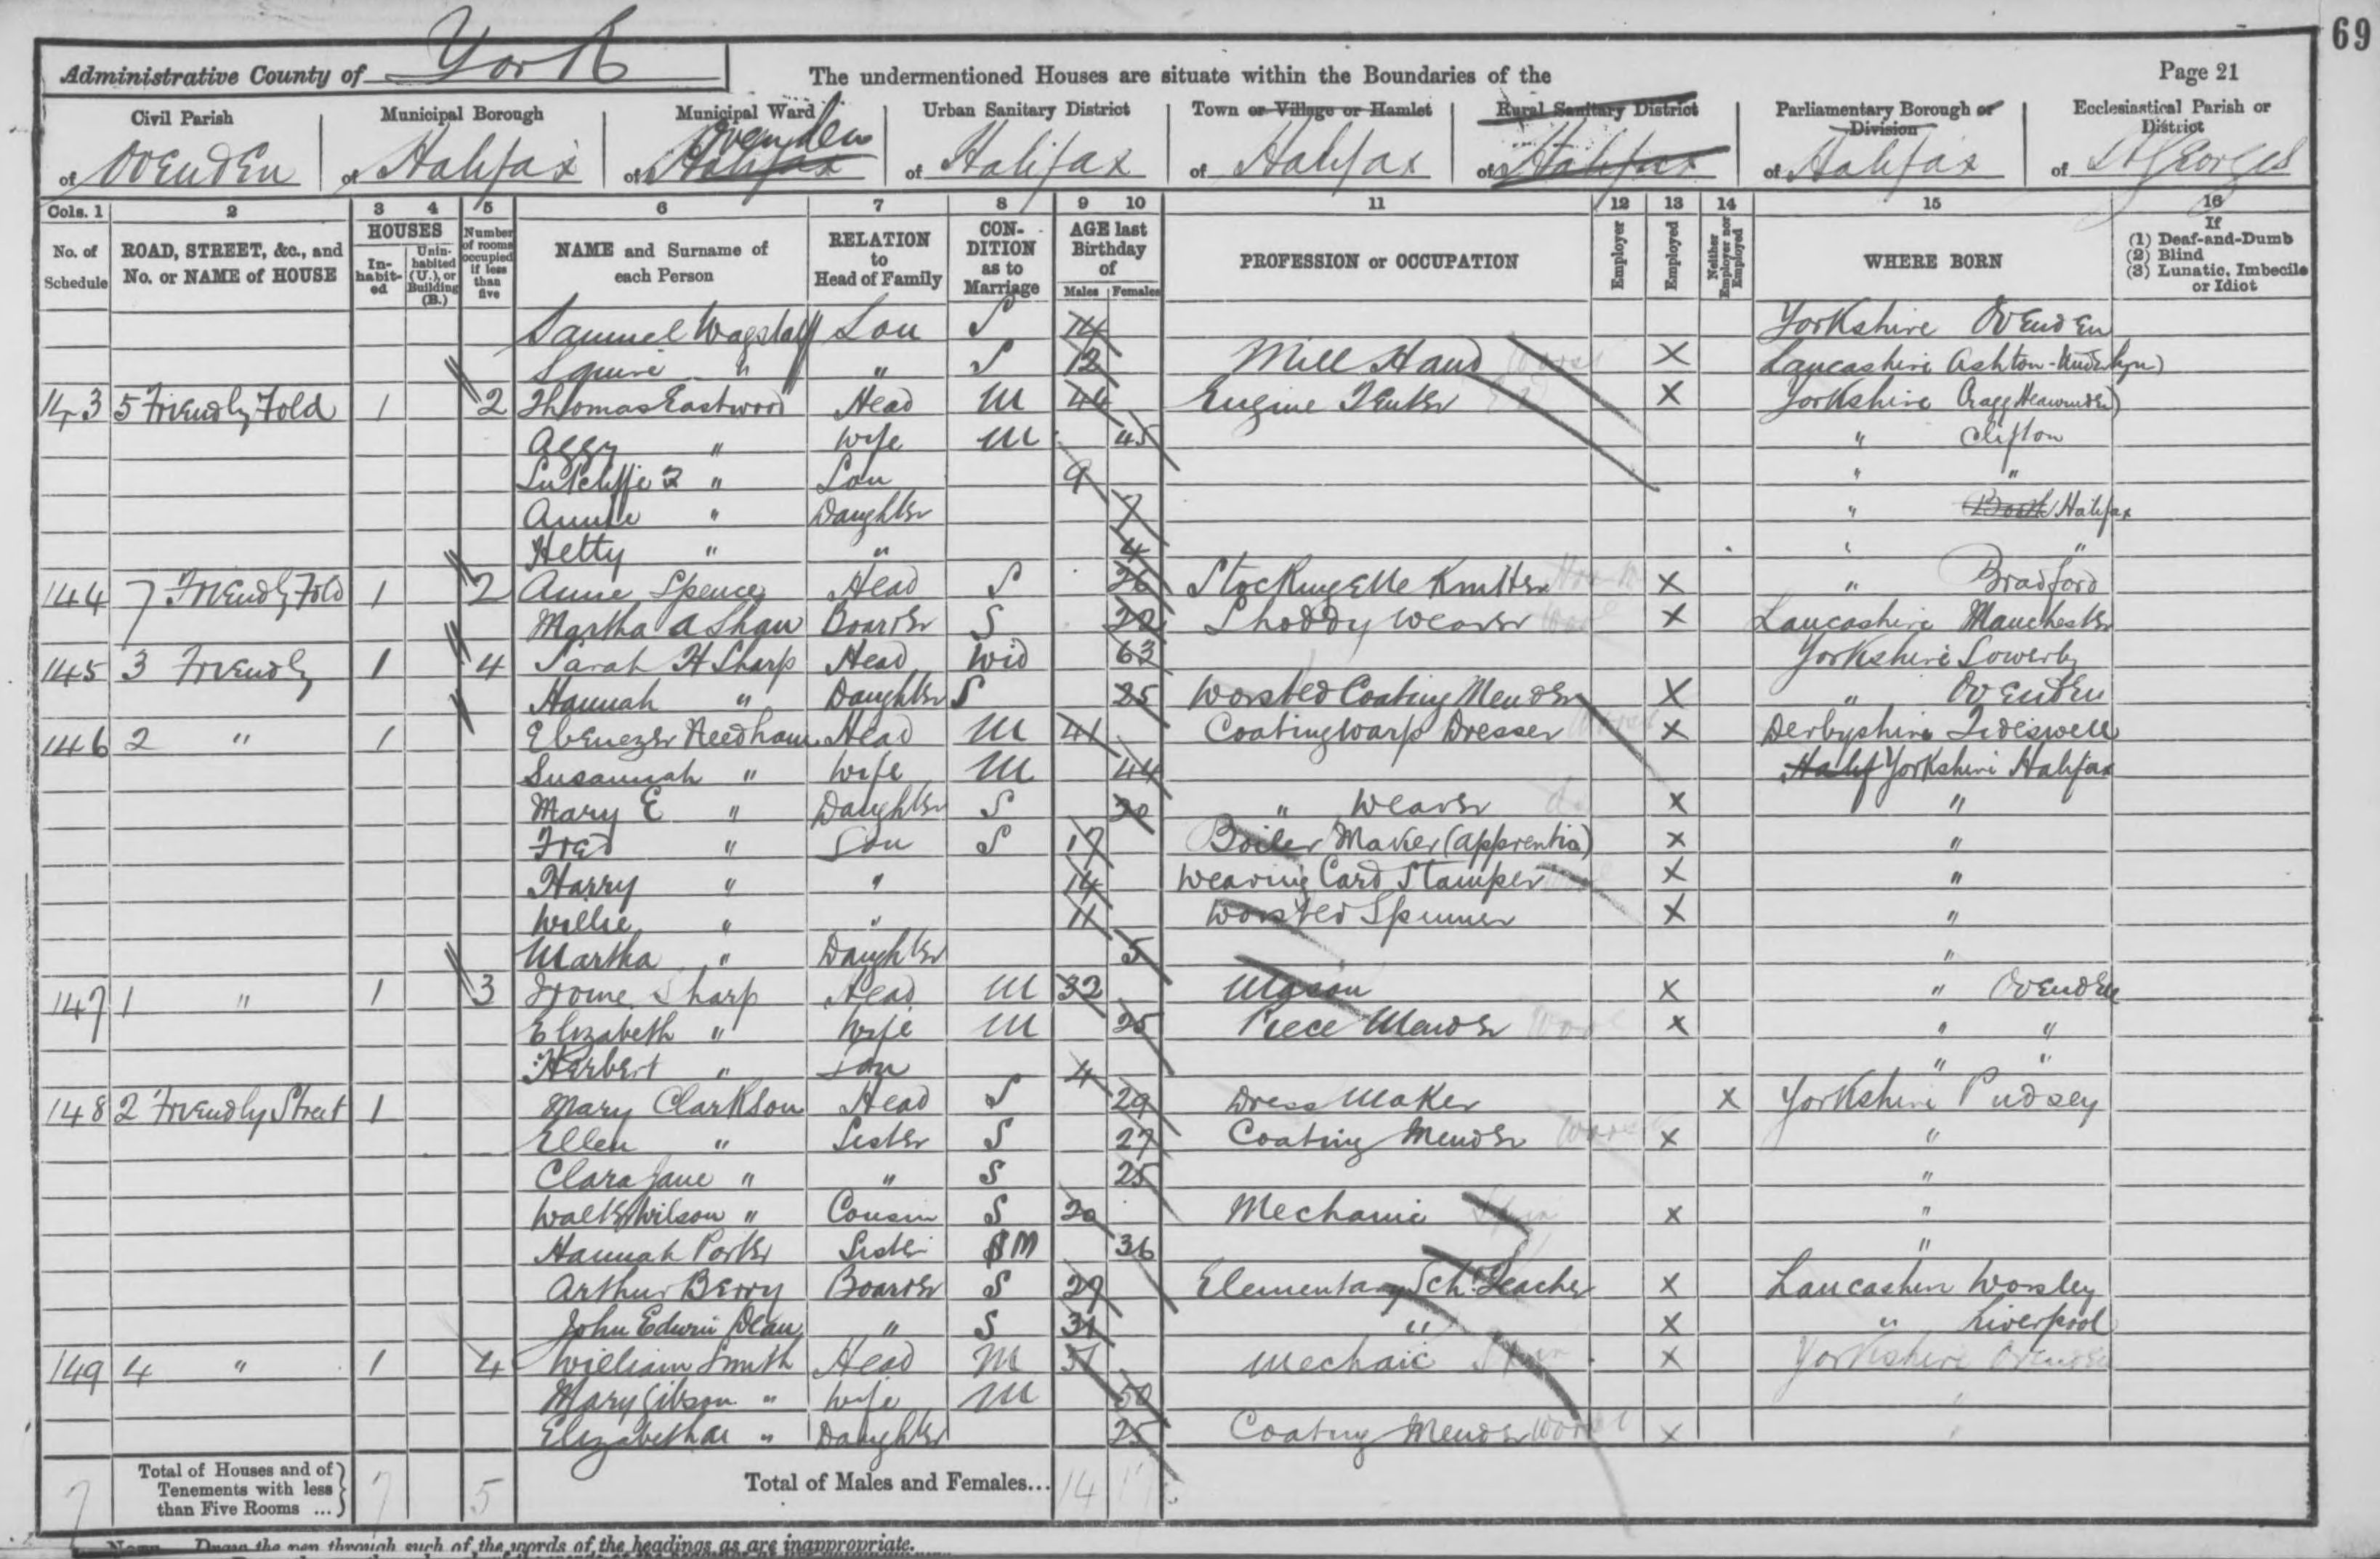 69
Administrative County of York The undermentioned Houses are situate within the Boundaries of the Page 21
Civil Parish Municipal Borough Municipal Ward Urban Sanitary District Town or Village or Hamlet Rural Sanitary District Parliamentary Borough or Division Ecclesiastical Parish or District
of Ovenden of Halifax of Halifax Ovenden of Halifax of Halifax of Halifax of Halifax of St Georges
Cols. 1 2 3 4 5 6 7 8 9 10 11 12 13 14 15 16
No. of Schedule ROAD, STREET, &c., and No. or NAME of HOUSE HOUSES Inhabited Uninhabited (U.), or Building (B.) Number of rooms occupied if less than five NAME and Surname of each Person RELATION to Head of Family CONDITION as to Marriage AGE last Birthday of Males Females PROFESSION or OCCUPATION Employer Employed Neither Employer nor Employed WHERE BORN If (1) Deaf-and-Dumb (2) Blind (3) Lunatic, Imbecile or Idiot
Samuel Wagstaff Son S 14 Yorkshire Ovenden
Squire " " S 12 Mill Hand X Lancashire Ashton-Under Lyn)
143 5 Friendly Fold 1 2 Thomas Eastwood Head M 44 Engine Tenter X Yorkshire
Aggy " Wife M 45 " Clifton
Sutcliffe " Son 9 " "
Annie " Daughter 7 " Booth Halifax
Hetty " " 4 " "
144 7 Friendly Fold 1 2 Anne Spence Head S 26 Stockingette Knitter X " Bradford
Martha A Shaw Boarder S 22 Shoddy Weaver Wool X Lancashire Manchester
145 3 Friendly 1 4 Sarah H Sharp Head Wid 63 Yorkshire Sowerby
Hannah " Daughter S 25 Worsted Coating Mender X " Ovenden
146 2 " 1 Ebenezer Needham Head M 41 Coating Warp Dresser X Derbyshire Tideswell
Susannah " Wife M 44 Half Yorkshire Halifax
Mary E " Daughter S 20 " Weaver do X "
Fred " Son S 17 Boiler Maker (Apprentice) X "
Harry " " 14 Weaving Card Stamper X "
Willie " " 11 Worsted Spinner X "
Martha " Daughter 5 "
147 1 " 1 3 Sharp Head M 32 Mason X " Ovenden
Elizabeth " Wife M 25 Piece Mender Wool X " "
Herbert " Son 4 " "
148 2 Friendly Street 1 Mary Clarkson Head S 29 Dress Maker X Yorkshire Pudsey
Ellen " Sister S 27 Coating Mender X "
Clara Jane " " S 25 "
Walter Wilson " Cousin S 20 Mechanic X "
Hannah Porter Sister S M 36 "
Arthur Berry Boarder S 29 Elementary Sch. Teacher X Lancashire Worsley
John Edwin Dean " S 31 " X " Liverpool
149 4 " 1 4 William Smith Head M 51 Mechaic X Yorkshire Ovenden
Mary Gibson " Wife M 50 "
" Daughter 25 Coating Mender X "
7 Total of Houses and of Tenements with less than Five Rooms ... 7 5 Total of Males and Females... 14 17
Note.—Draw the pen through such of the words of the headings as are inappropriate.